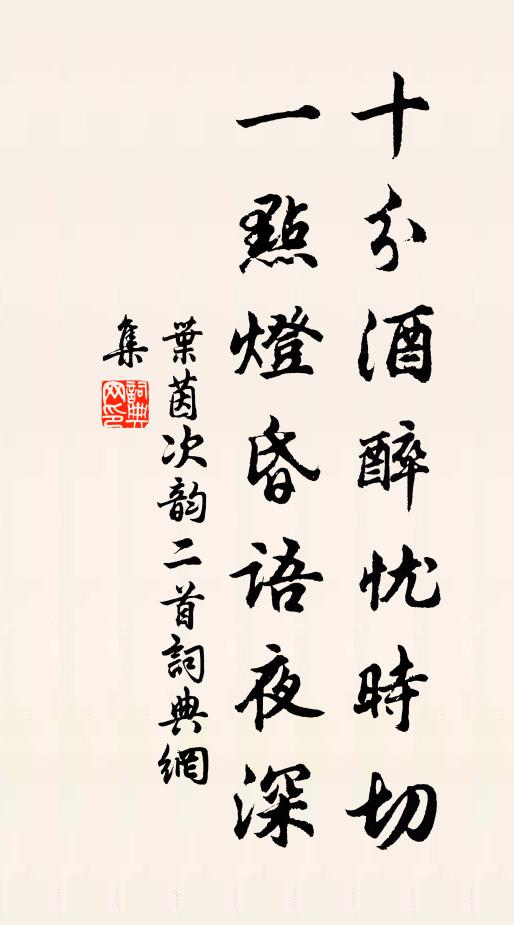 十分酒醉忧時切
一點燈昏語夜深
葉茵次韵二首詞典網
集
詞典
网印